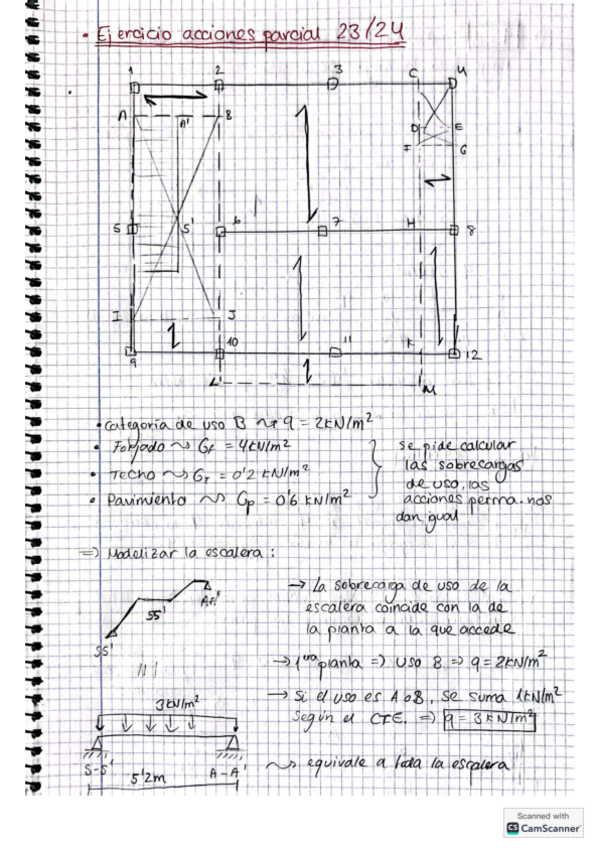 • Ejercicio acciones parcial 23/24
1
2
3
C
4
A
A'
B
D
E
F
G
5
5'
6
7
H
8
I
J
9
10
11
K
12
L
M
• Categoría de uso B ~> q = 2kN/m²
• Forjado ~> Gf = 4kN/m²
• Techo ~> GT = 0'2 kN/m²
• Pavimiento ~> Gp = 0'6 kN/m²
se pide calcular
las sobrecargas
de uso, las
acciones perma. nos
dan igual
=> Modelizar la escalera:
55'
55'
→ La sobrecarga de uso de la
escalera coincide con la de
la planta a la que accede
→ 1ra planta => USO B => q = 2kN/m²
→ Si el uso es A o B, se suma 1kN/m²
según el CTE. => q = 3 kN/m²
~> equivale a toda la escalera
3 kN/m²
5-5'
A-A'
5'2m
Scanned with
CS CamScanner